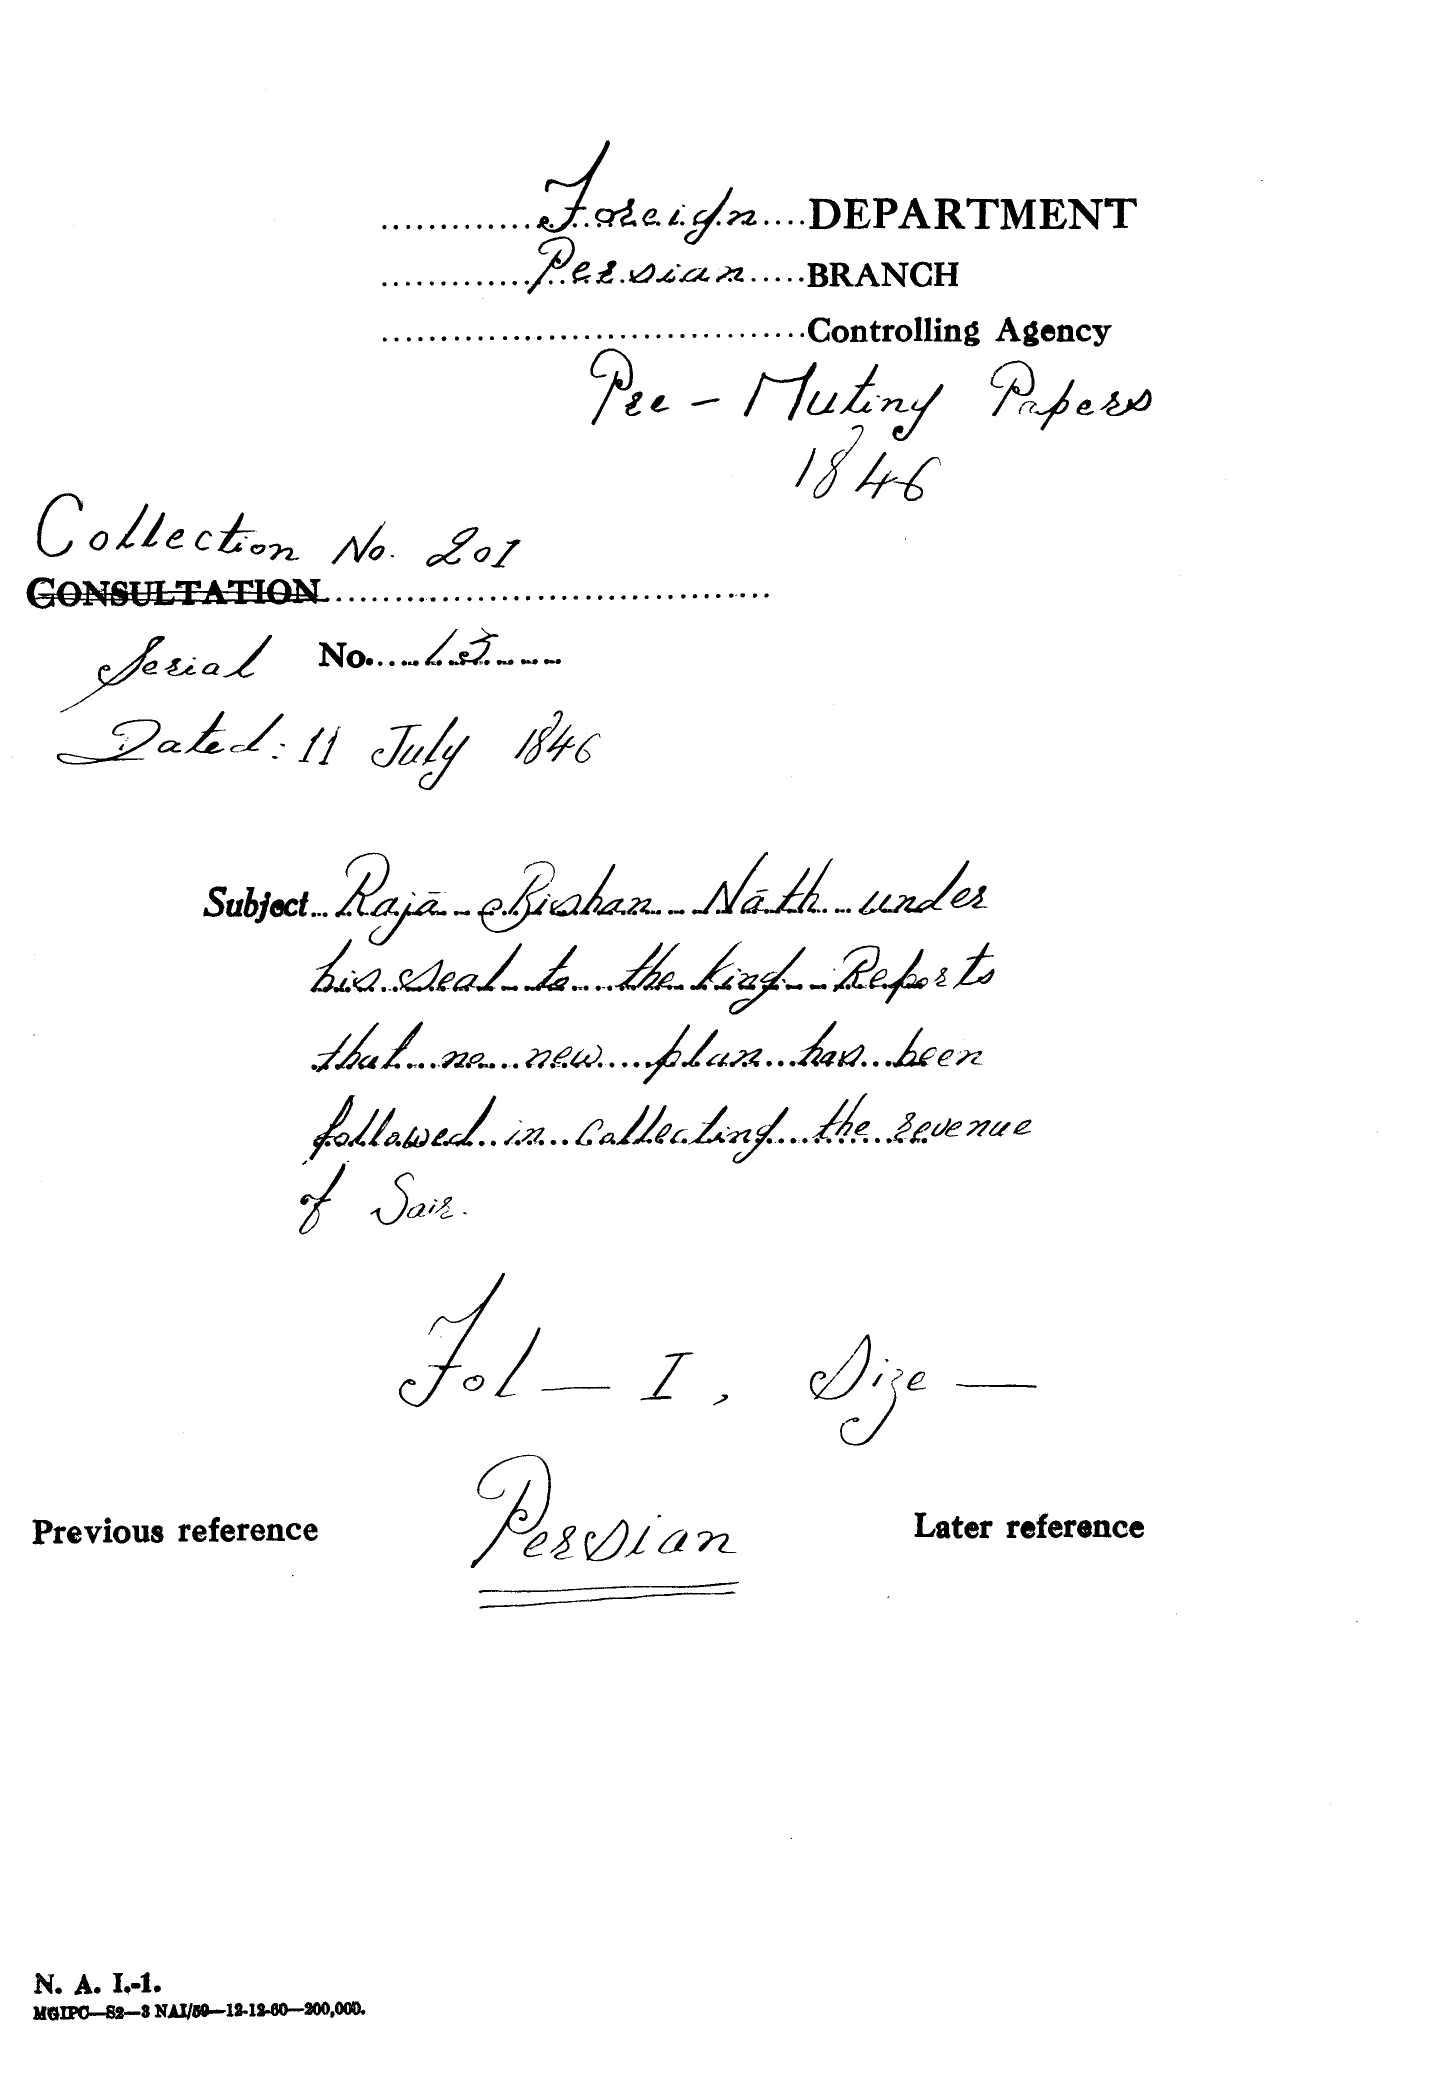 Foreign DEPARTMENT
Persian BRANCH
Controlling Agency
Pre - Mutiny Papers
1846
Collection No. 201
CONSULTATION
Serial No. 15
Dated: 11 July 1846
Subject Rajā Bishan Nāth under
his seal to the King Reports
that no new plan has been
followed in collecting the revenue
of Sair.
Fol — I, Size —
Persian
Previous reference Later reference
N. A. I.-1.
MGIPC—S2—3 NAI/59—12-12-60—200,000.